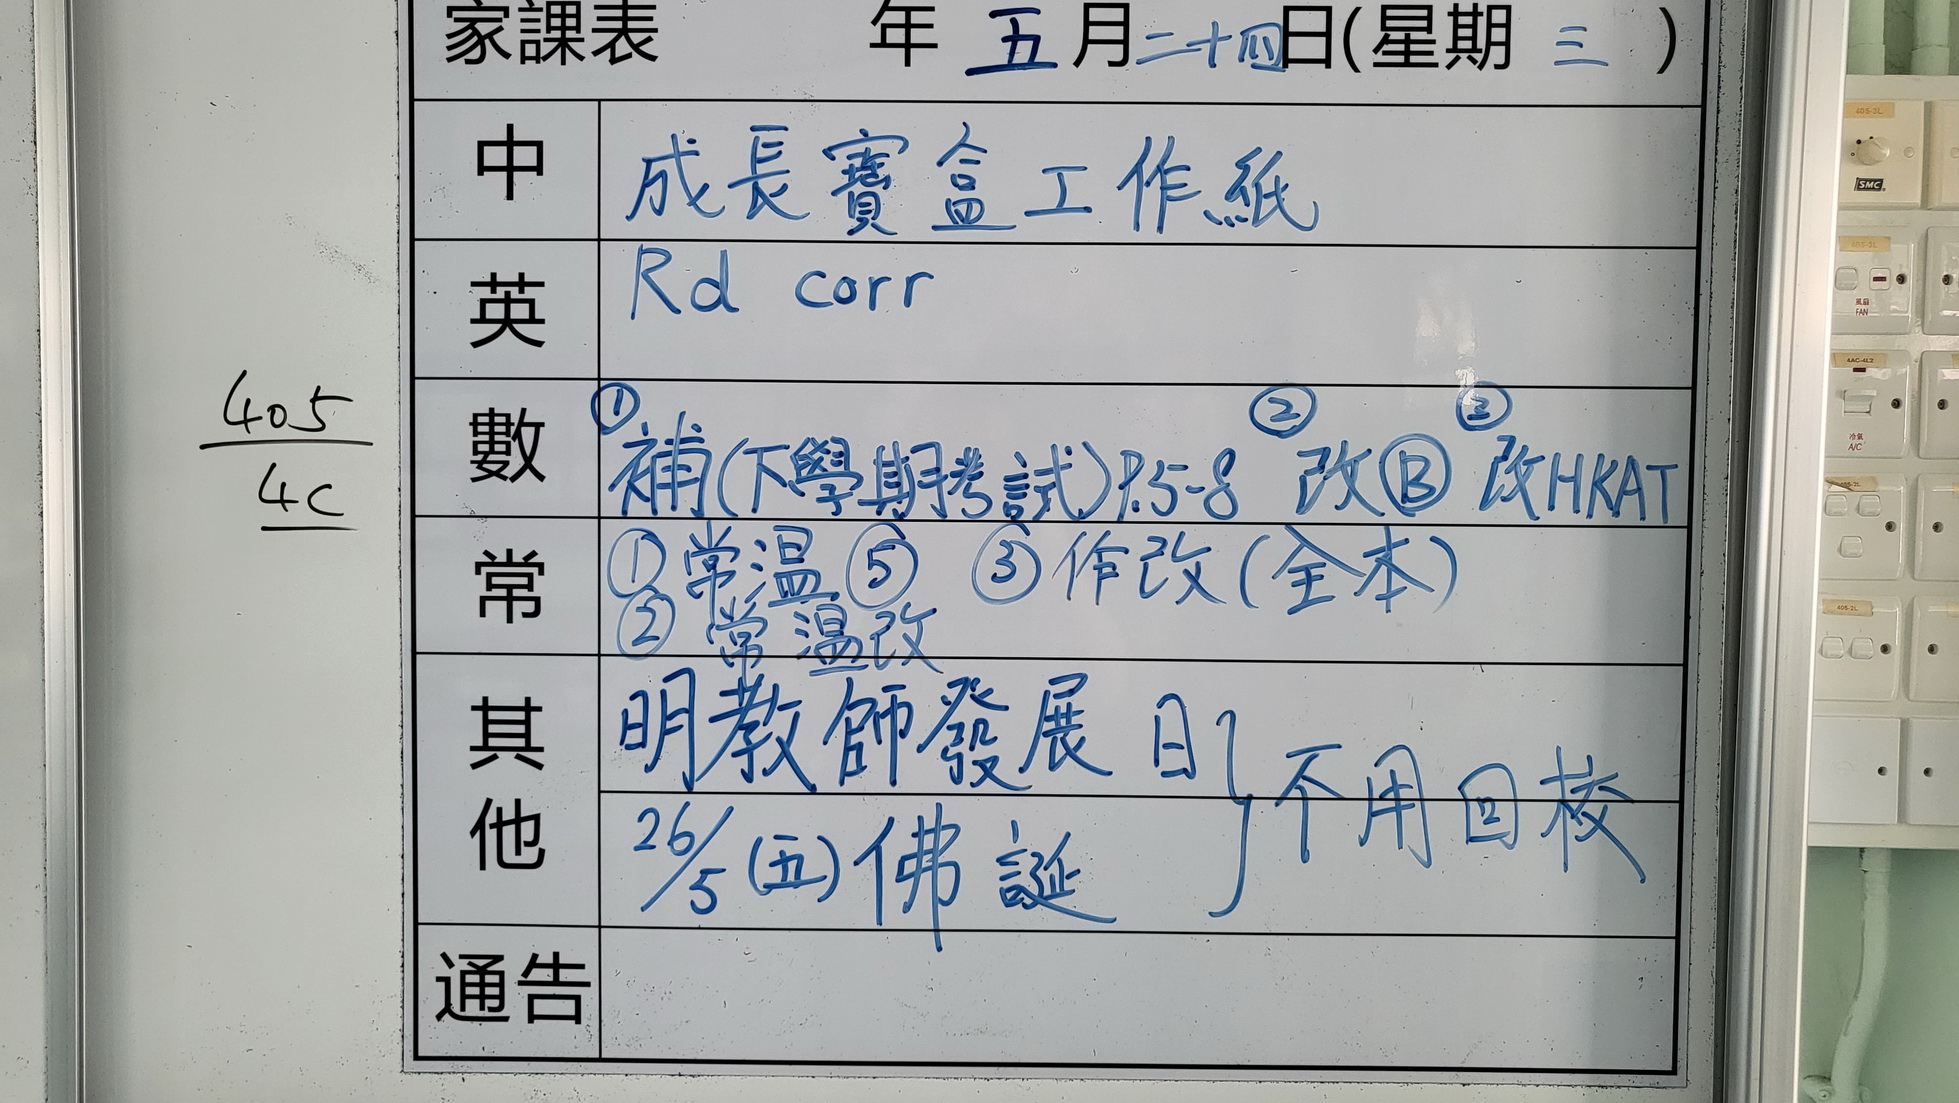 家課表 年 五 月 二十四 日(星期 三 )
中 成長寶盒工作紙
英 Rd corr
405
4C
數 ① 補(下學期考試)P.5-8 ② 改Ⓑ ② 改HKAT
常 ① 常溫⑤ ③ 作改(全本)
② 常溫改
其他 明教師發展日 } 不用回校
26/5 (五) 佛誕
通告
405-3L
SMC
405-3L
風扇
FAN
4AC-4L2
冷氣
A/C
405-2L
405-2L